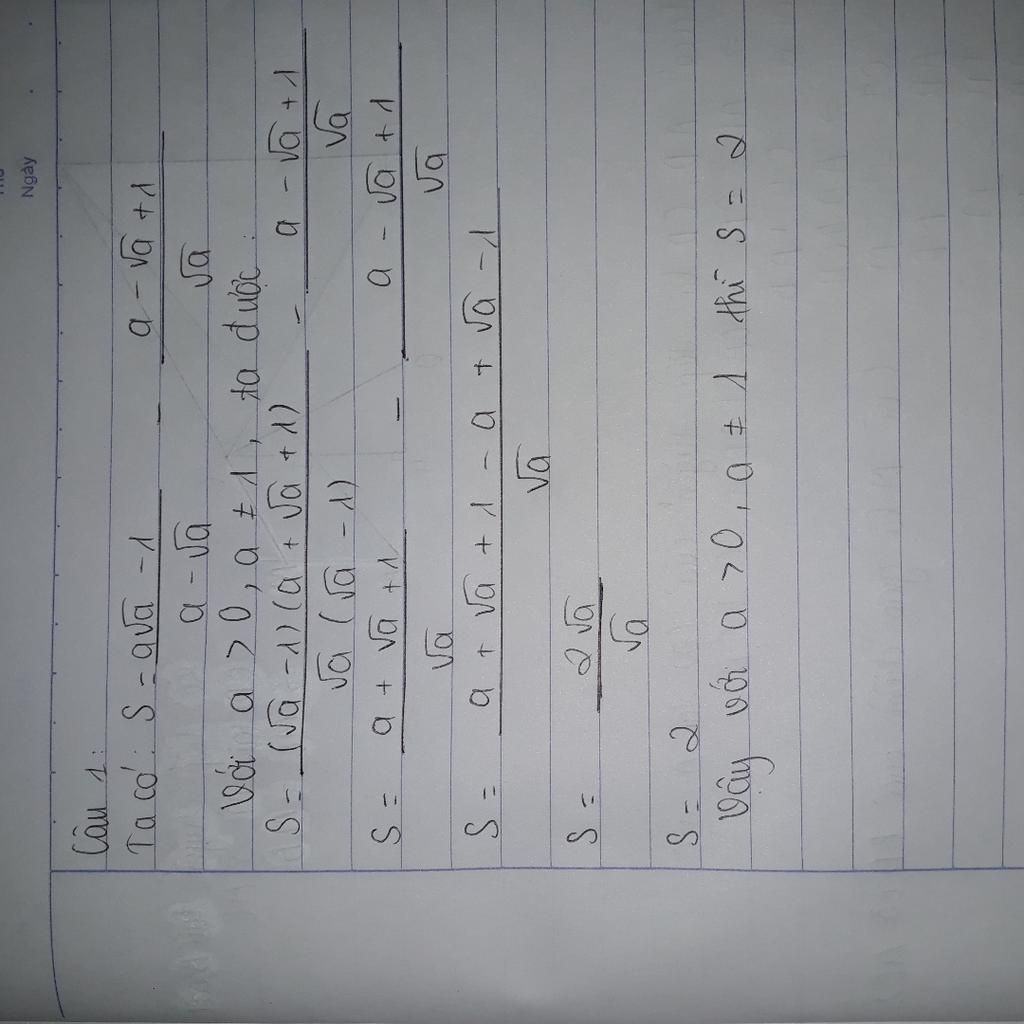 Thứ
Ngày
Câu 1:
Ta có: S = a√a - 1 / a - √a - a - √a + 1 / √a
Với a > 0, a ≠ 1, ta được:
S = (√a - 1)(a + √a + 1) / √a (√a - 1) - a - √a + 1 / √a
S = a + √a + 1 / √a - a - √a + 1 / √a
S = a + √a + 1 - a + √a - 1 / √a
S = 2√a / √a
S = 2
Vậy với a > 0, a ≠ 1 thì S = 2